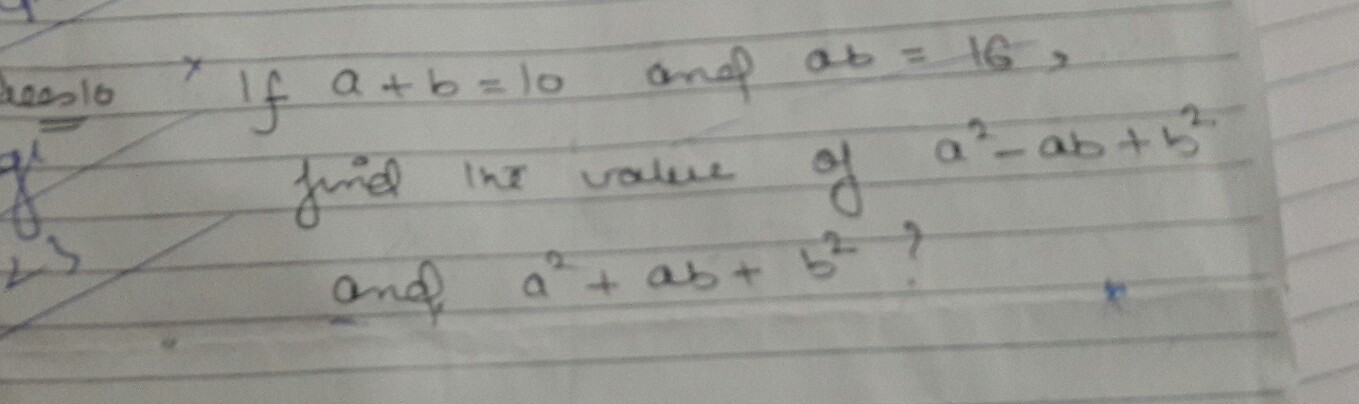 If a + b = 10 and ab = 16,
find the value of a² - ab + b²
and a² + ab + b² ?